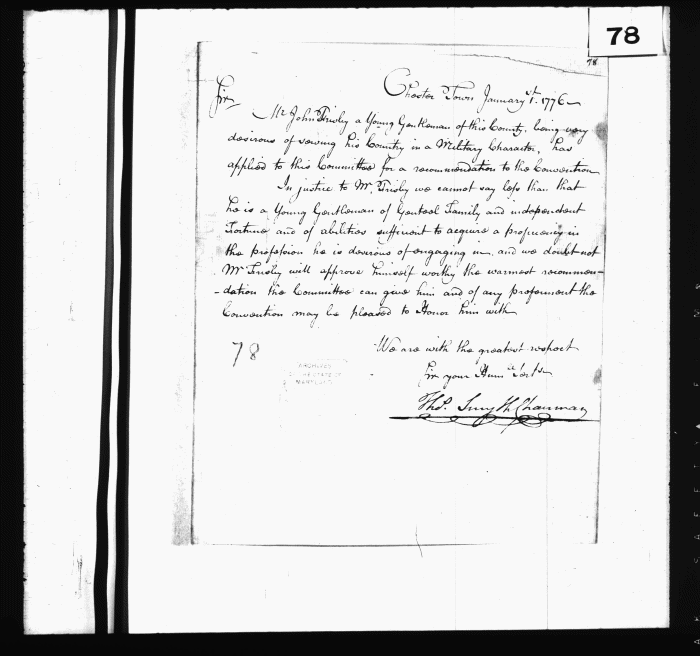 78
78
Chester Town January 1st. 1776
Sir
Mr John Frisby a Young Gentleman of this County, being very
desirous of serving his Country in a Military Character, has
applied to this Committee for a recommendation to the Convention
In justice to Mr. Frisby we cannot say less than that
he is a Young Gentleman of Genteel Family and independent
Fortune and of abilities sufficient to acquire a proficiency in
the profession he is desirous of engaging in, and we doubt not
Mr Frisby will approve himself worthy the warmest recommen-
-dation the Committee can give him and of any preferment the
Convention may be pleased to Honor him with
We are with the greatest respect
Sir your Hume Servts
Thos. Smyth Chairman
78
ARCHIVES
OF THE STATE OF
MARYLAND